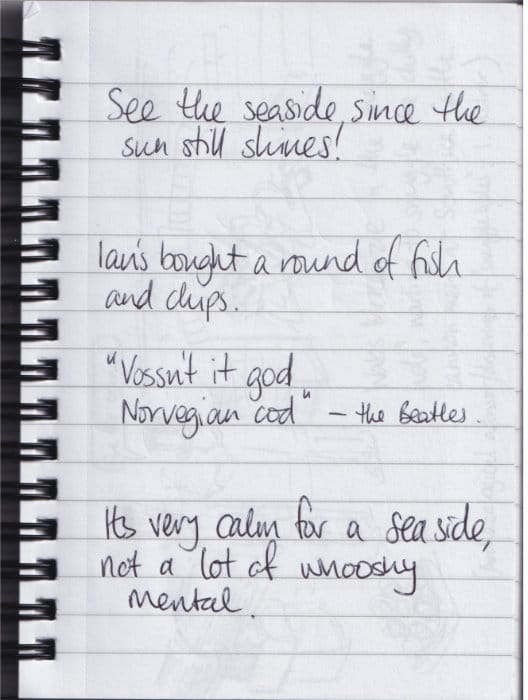 See the seaside, since the
sun still shines!
Ian's bought a round of fish
and chips.
"Vossn't it god
Norvegian cod" – the Beatles.
Its very calm for a seaside,
not a lot of whooshy
mental.